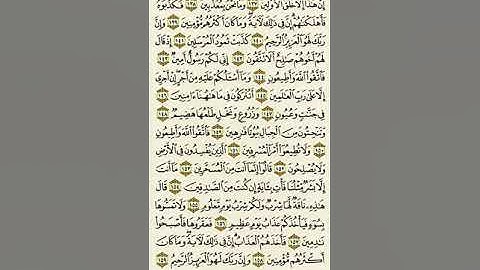 إِنْ هَٰذَا إِلَّا خُلُقُ الْأَوَّلِينَ ١٣٧ وَمَا نَحْنُ بِمُعَذَّبِينَ ١٣٨ فَكَذَّبُوهُ
فَأَهْلَكْنَاهُمْ إِنَّ فِي ذَٰلِكَ لَآيَةً وَمَا كَانَ أَكْثَرُهُم مُّؤْمِنِينَ ١٣٩ وَإِنَّ
رَبَّكَ لَهُوَ الْعَزِيزُ الرَّحِيمُ ١٤٠ كَذَّبَتْ ثَمُودُ الْمُرْسَلِينَ ١٤١ إِذْ قَالَ
لَهُمْ أَخُوهُمْ صَالِحٌ أَلَا تَتَّقُونَ ١٤٢ إِنِّي لَكُمْ رَسُولٌ أَمِينٌ ١٤٣
فَاتَّقُوا اللَّهَ وَأَطِيعُونِ ١٤٤ وَمَا أَسْأَلُكُمْ عَلَيْهِ مِنْ أَجْرٍ إِنْ أَجْرِيَ
إِلَّا عَلَىٰ رَبِّ الْعَالَمِينَ ١٤٥ أَتُتْرَكُونَ فِي مَا هَاهُنَا آمِنِينَ ١٤٦
فِي جَنَّاتٍ وَعُيُونٍ ١٤٧ وَزُرُوعٍ وَنَخْلٍ طَلْعُهَا هَضِيمٌ ١٤٨
وَتَنْحِتُونَ مِنَ الْجِبَالِ بُيُوتًا فَارِهِينَ ١٤٩ فَاتَّقُوا اللَّهَ وَأَطِيعُونِ
١٥٠ وَلَا تُطِيعُوا أَمْرَ الْمُسْرِفِينَ ١٥١ الَّذِينَ يُفْسِدُونَ فِي الْأَرْضِ
وَلَا يُصْلِحُونَ ١٥٢ قَالُوا إِنَّمَا أَنتَ مِنَ الْمُسَحَّرِينَ ١٥٣ مَا أَنتَ
إِلَّا بَشَرٌ مِّثْلُنَا فَأْتِ بِآيَةٍ إِن كُنتَ مِنَ الصَّادِقِينَ ١٥٤ قَالَ
هَٰذِهِ نَاقَةٌ لَّهَا شِرْبٌ وَلَكُمْ شِرْبُ يَوْمٍ مَّعْلُومٍ ١٥٥ وَلَا تَمَسُّوهَا
بِسُوءٍ فَيَأْخُذَكُمْ عَذَابُ يَوْمٍ عَظِيمٍ ١٥٦ فَعَقَرُوهَا فَأَصْبَحُوا
نَادِمِينَ ١٥٧ فَأَخَذَهُمُ الْعَذَابُ إِنَّ فِي ذَٰلِكَ لَآيَةً وَمَا كَانَ
أَكْثَرُهُم مُّؤْمِنِينَ ١٥٨ وَإِنَّ رَبَّكَ لَهُوَ الْعَزِيزُ الرَّحِيمُ ١٥٩